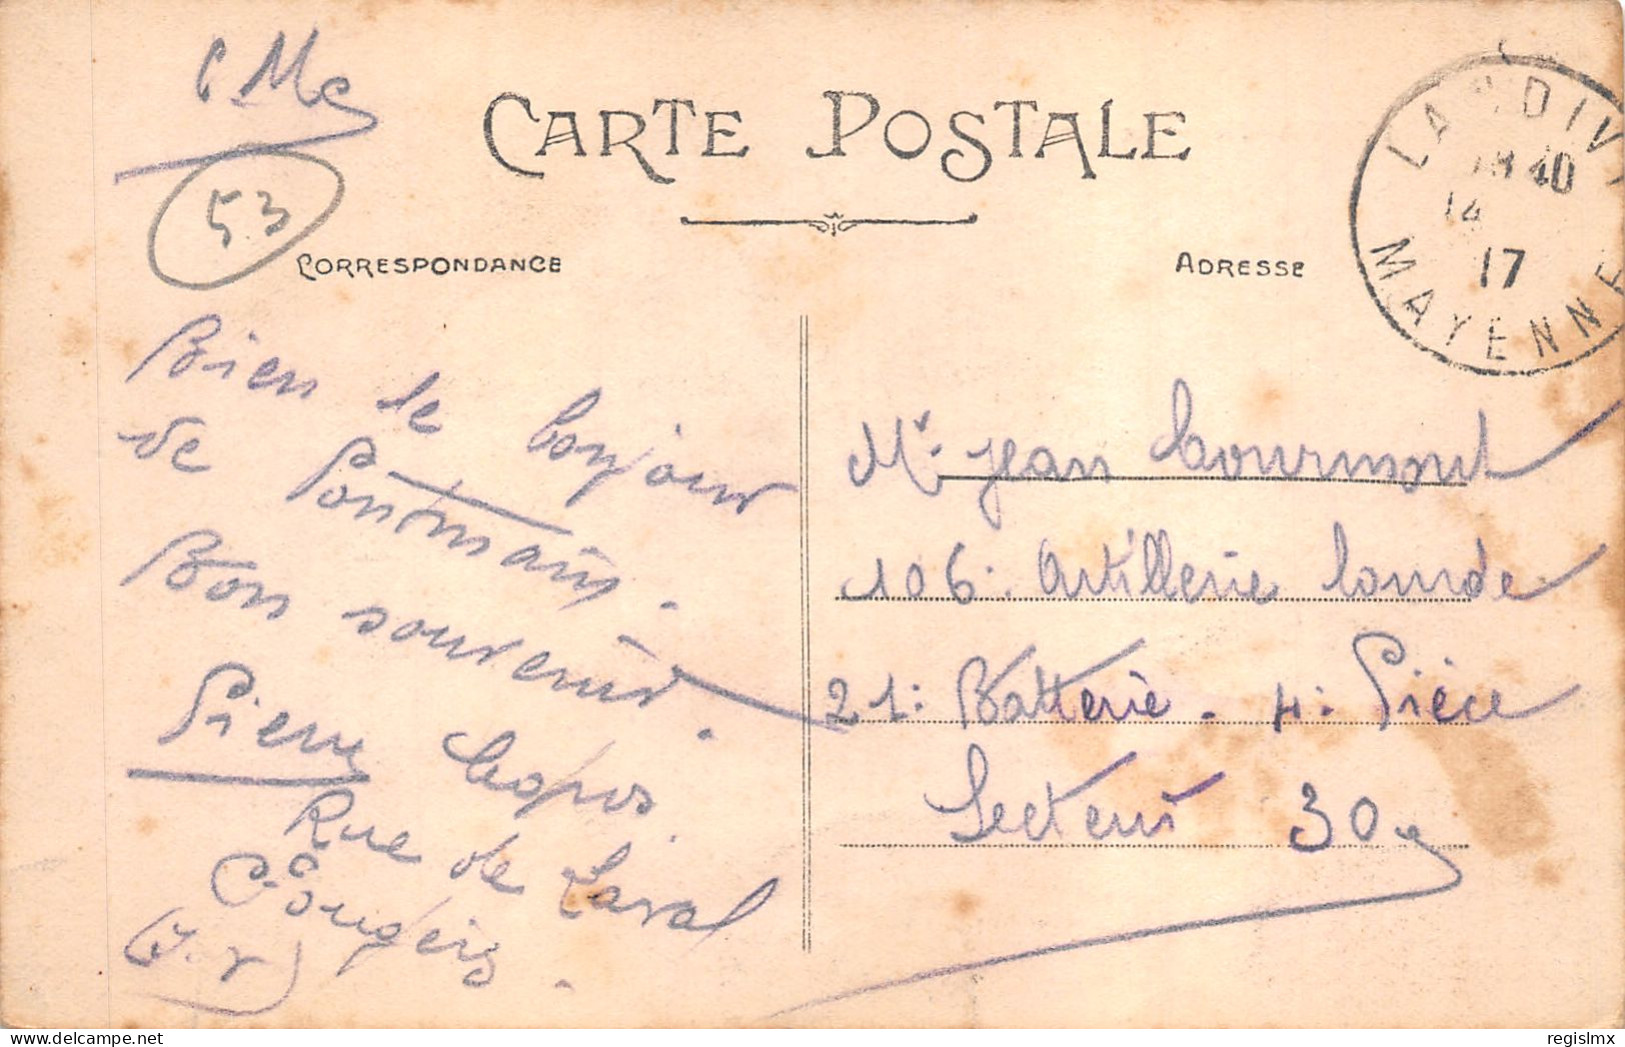 C Me
CARTE POSTALE
53
CORRESPONDANCE
Bien le bonjour
de Pontmain.
Bon souvenir.
Pierre
Rue de Laval
Fougères.
(I-V)
ADRESSE
LANDIVY
18 40
14
17
MAYENNE
Mr Jean Courmont
106: Artillerie Lourde
21: Batterie - 4: Pièce
Secteur 30
regislmx